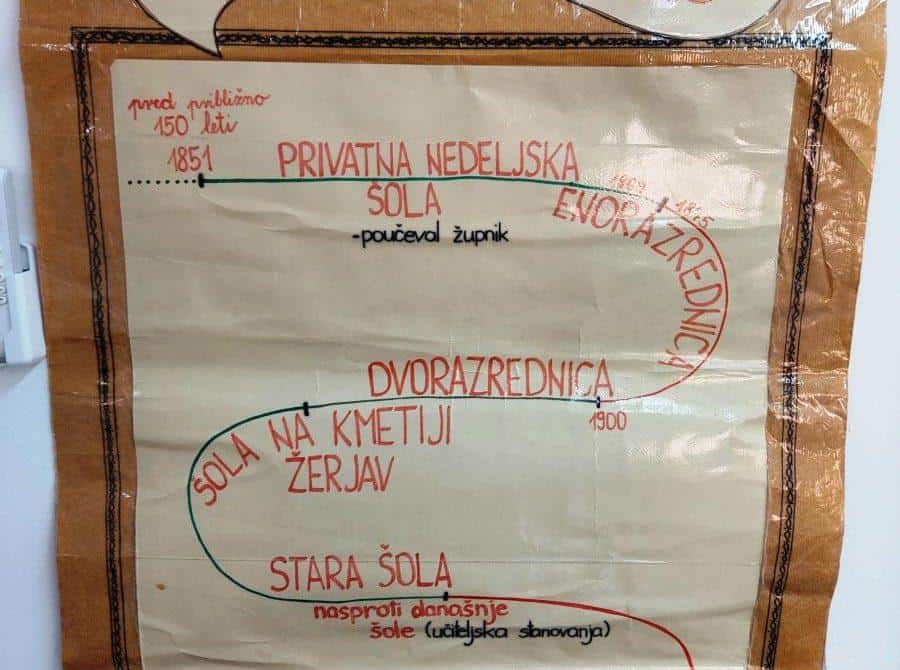 pred približno
150 leti
1851
PRIVATNA NEDELJSKA
ŠOLA
-poučeval župnik
1869
ENORAZREDNICA
1900
DVORAZREDNICA
ŠOLA NA KMETIJI
ŽERJAV
STARA ŠOLA
nasproti današnje
šole (učiteljska stanovanja)